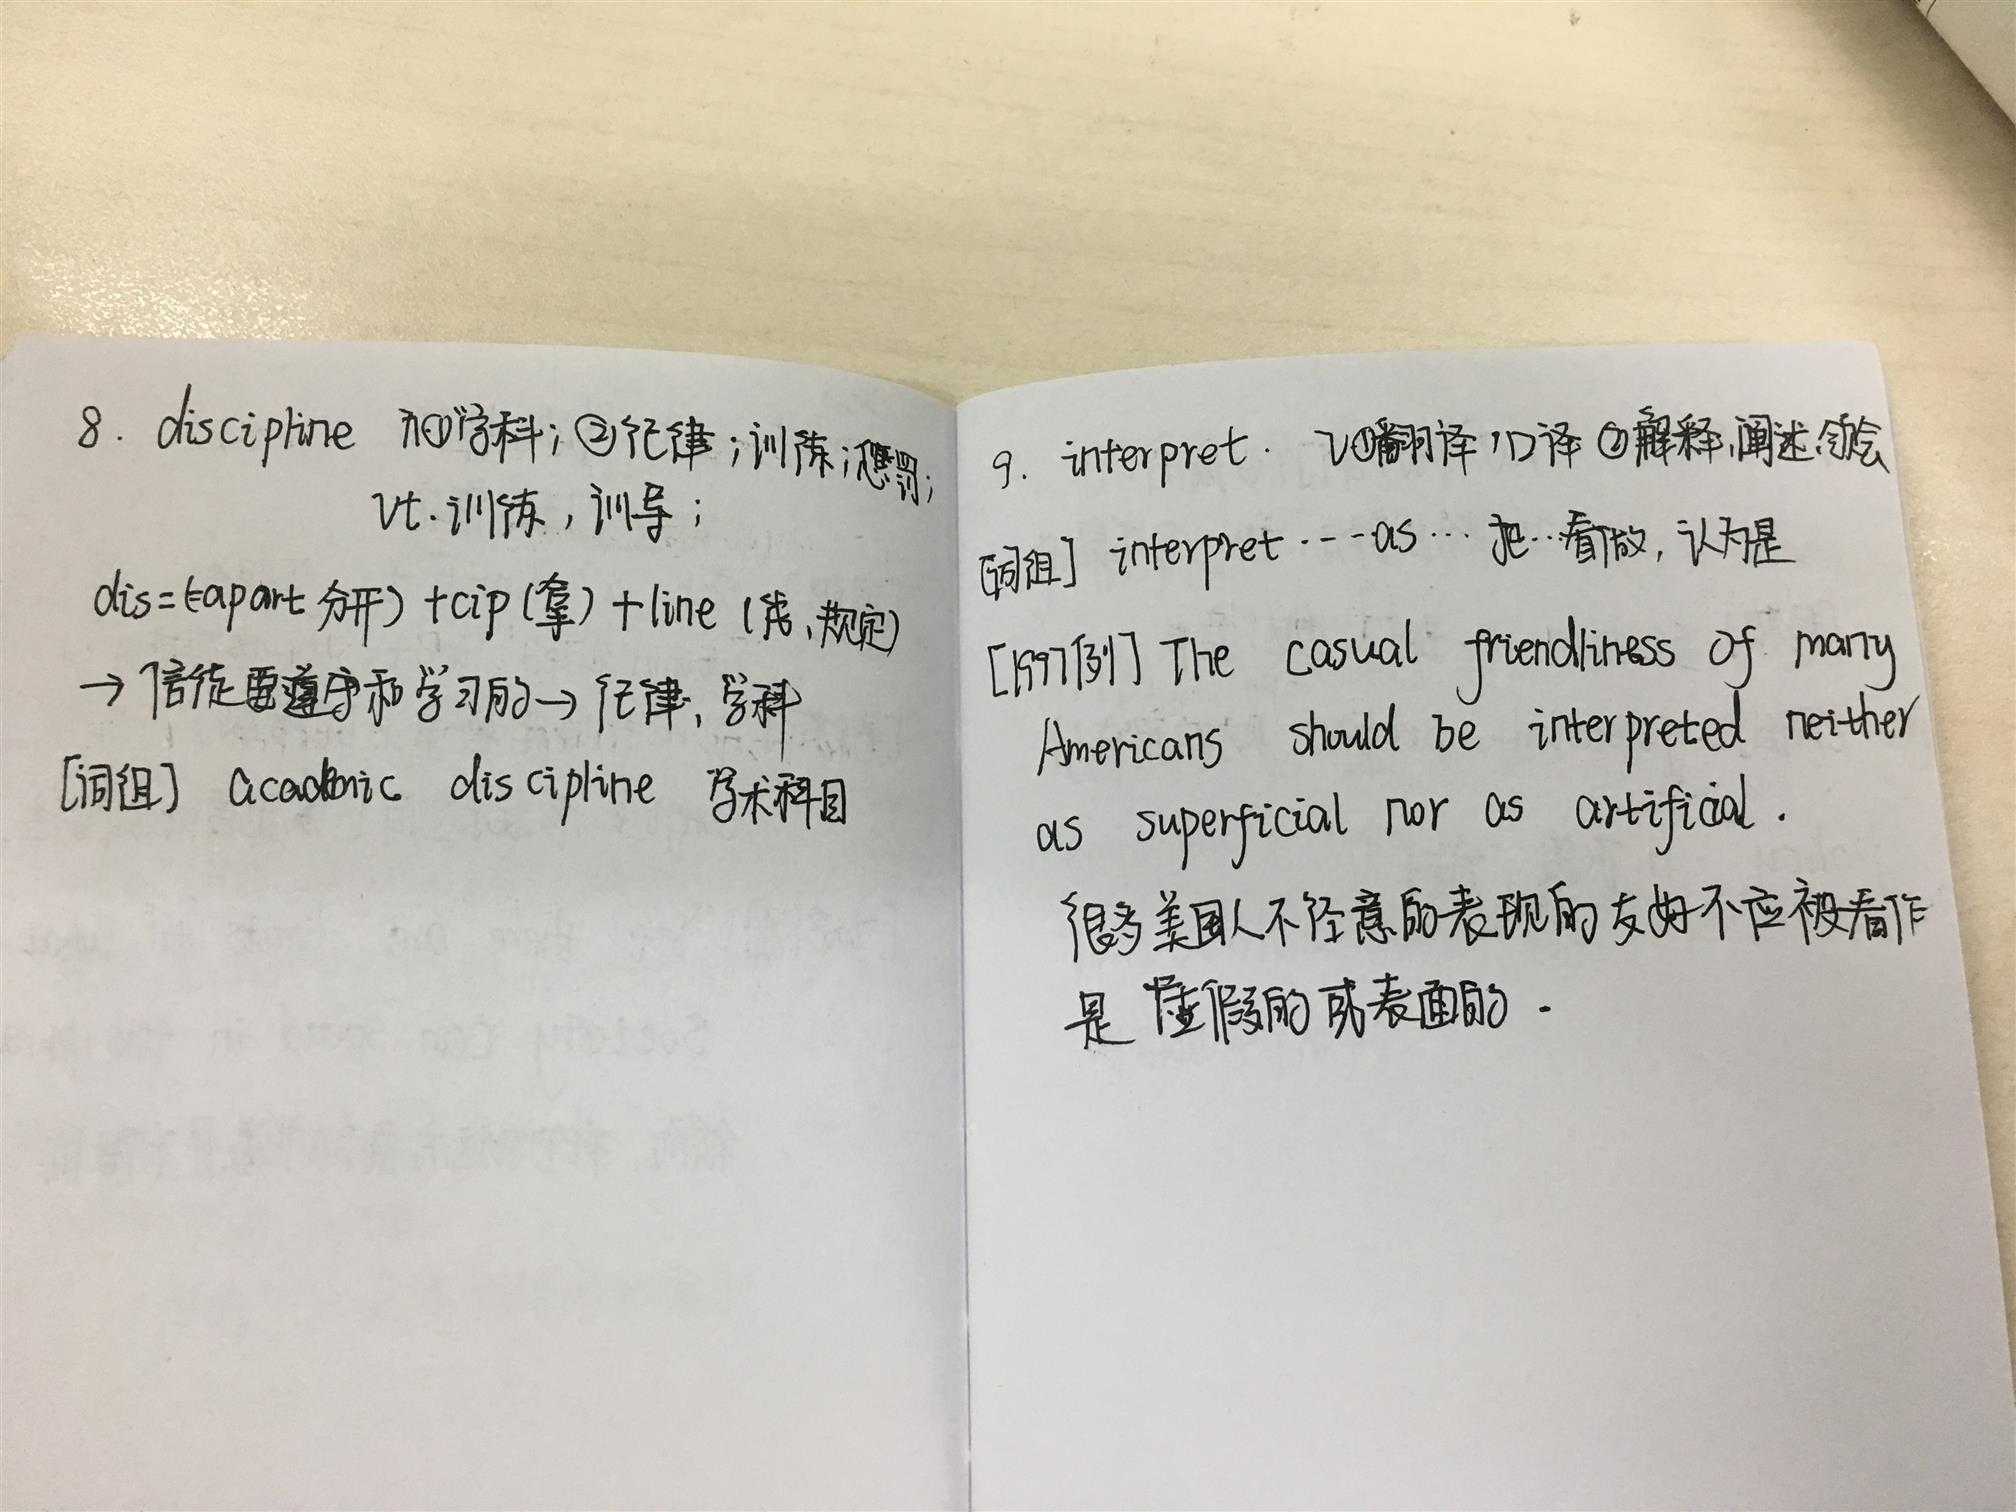 8. discipline n①学科; ②纪律; 训练; 惩罚;
vt. 训练, 训导;
dis=(=apart 分开) +cip (拿) +line (线, 规定)
→ 信徒要遵守和学习的 → 纪律, 学科
[词组] academic discipline 学术科目
9. interpret. v①翻译, 口译 ②解释, 阐述, 领会
[词组] interpret ···as··· 把···看做, 认为是
[1997例] The casual friendliness of many
Americans should be interpreted neither
as superficial nor as artificial.
很多美国人不经意的表现的友好不应被看作
是 虚假的或表面的.